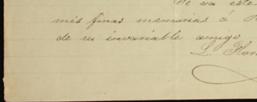 de va este
mis finas memorias á
de su invariable amigo
L.